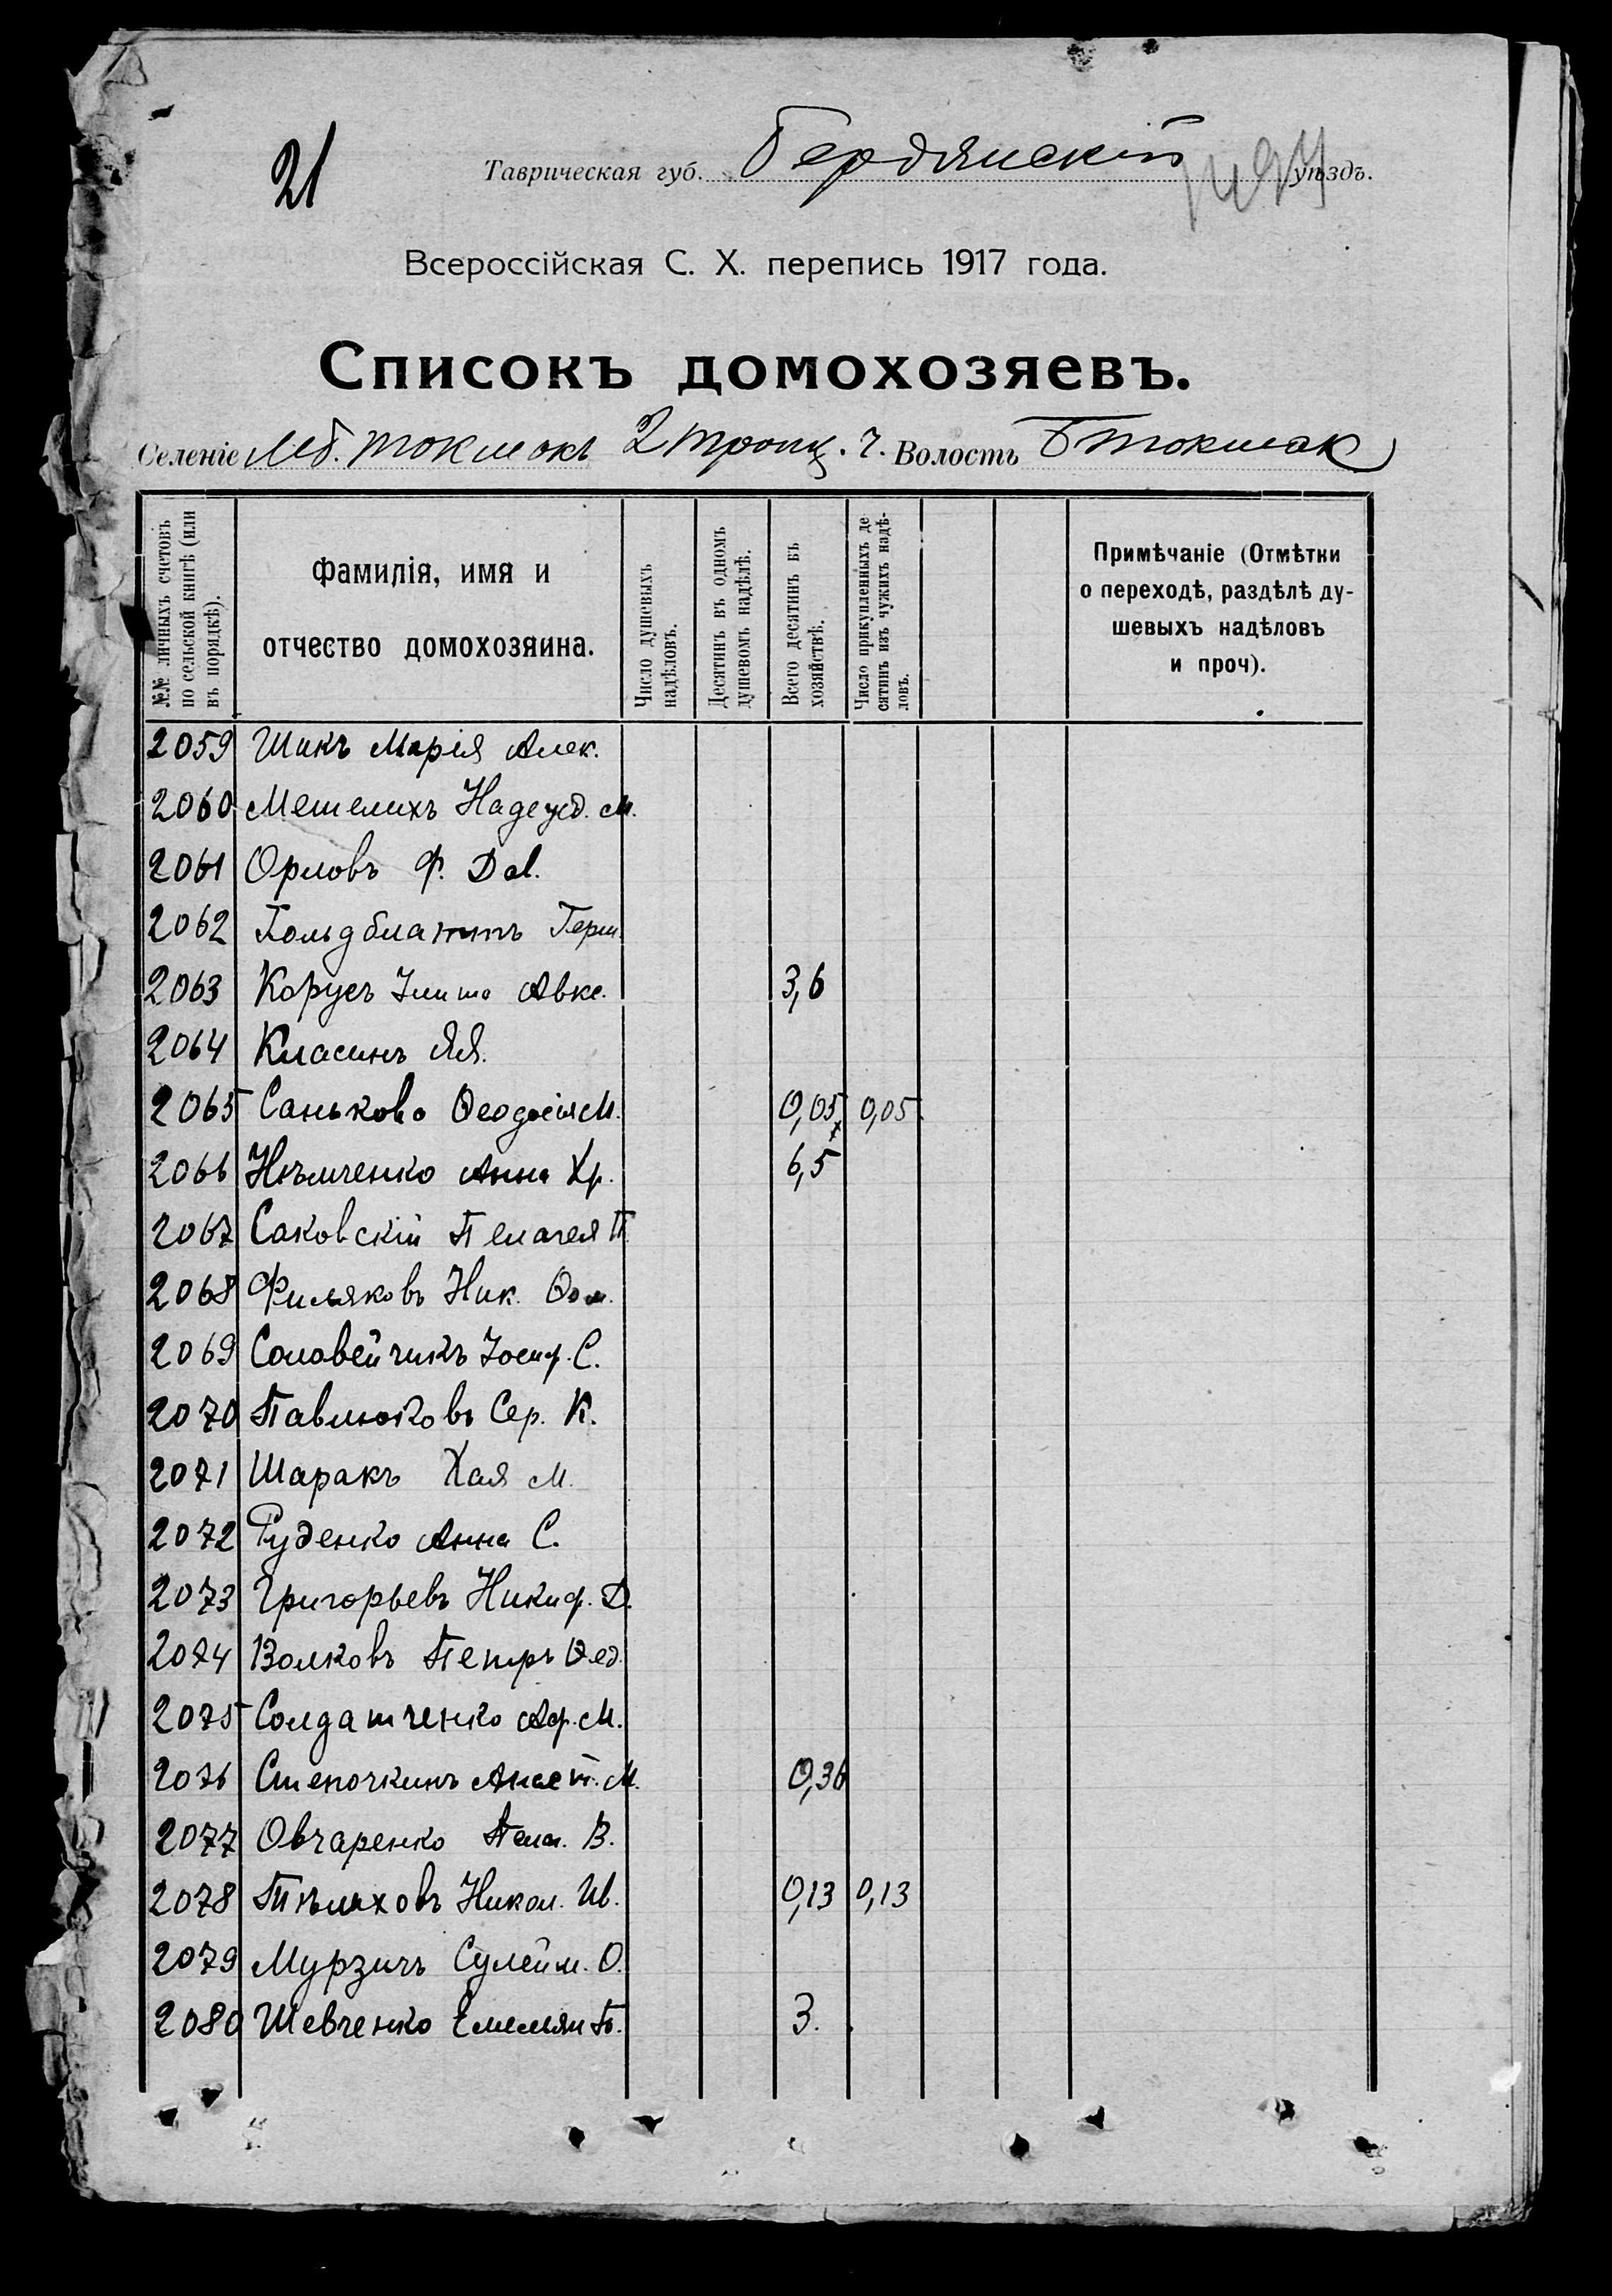 21
Таврическая губ. Бердянскій уѣздъ.
Всероссійская С. Х. перепись 1917 года.
Списокъ домохозяевъ.
Селеніе Мб. Токмокъ 2 троиц. ч. Волость Б Токмак
№№ личныхъ счетовъ по сельской книгѣ (или въ порядкѣ).
Фамилія, имя и отчество домохозяина.
Число душевыхъ надѣловъ.
Десятинъ въ одномъ душевомъ надѣлѣ.
Всего десятинъ въ хозяйствѣ.
Число прикупленныхъ десятинъ изъ чужихъ надѣловъ.
Примѣчаніе (Отмѣтки о переходѣ, раздѣлѣ душевыхъ надѣловъ и проч).
2059 Шикъ Марія Алек.
2060 Мешелихъ Надежд. М.
2061 Орловъ Ф. Dal.
2062 Гольдблаттъ Герш.
2063 Корусъ Авкс. 3,6
2064 Класинъ Я.Я.
2065 Санькова Ѳеодосія М. 0,05 0,05
2066 Нѣмченко Анна Хр. 6,5
2067 Саковскій Пелагея П.
2068 Филяковъ Ник. Ѳом.
2069 Соловейчикъ Іосиф. С.
2070 Павлюковъ Сер. К.
2071 Шаракъ Хая М.
2072 Руденко Анна С.
2073 Григорьевъ Никиф. Д.
2074 Волковъ Петръ Ѳед.
2075 Солдатченко Аф. М.
2076 Степочкинъ М. 0,36
2077 Овчаренко Пела. В.
2078 Тѣляховъ Никол. Ив. 0,13 0,13
2079 Мурзичъ Сулейм. О.
2080 Шевченко Емельян П. 3.